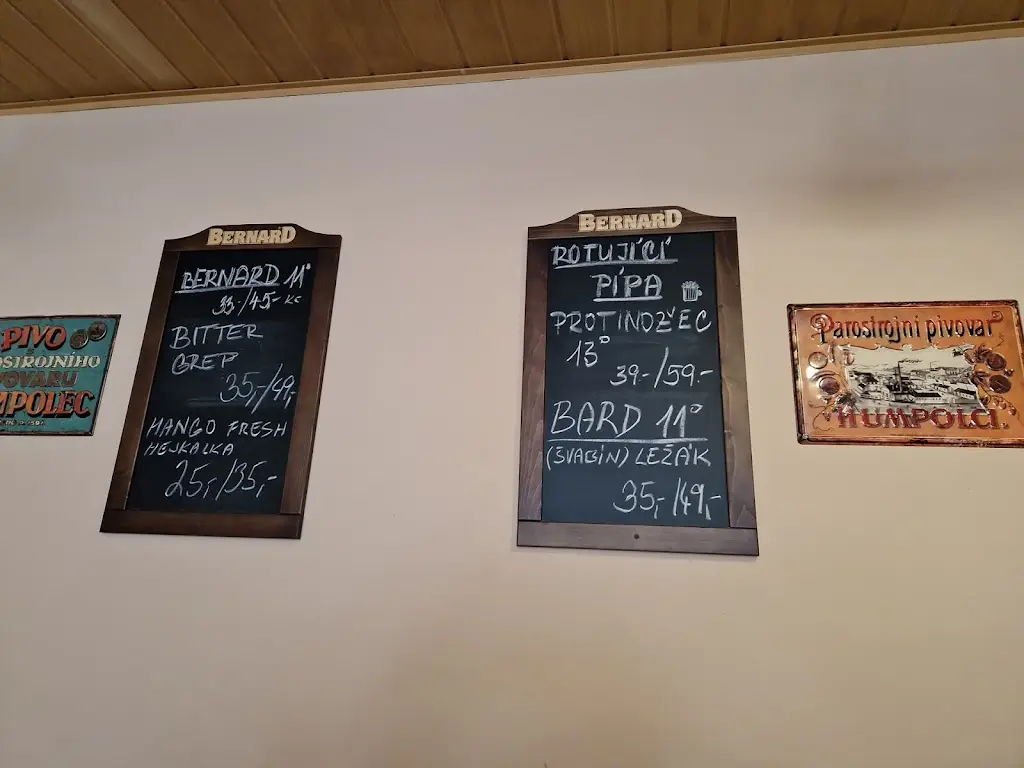 PIVO
OSTROJNÍHO
OVARU
MPOLEC
BERNARD
BERNARD 11°
33,-/45,- Kč
BITTER
GREP
35,-/49,-
MANGO FRESH
HEJKALKA
25,-/35,-
BERNARD
ROTUJÍCÍ
PÍPA
PROTINOŽEC
13°
39.-/59.-
BARD 11°
(ŠVABIN) LEŽÁK
35,-/49,-
Parostrojní pivovar
HUMPOLCI.